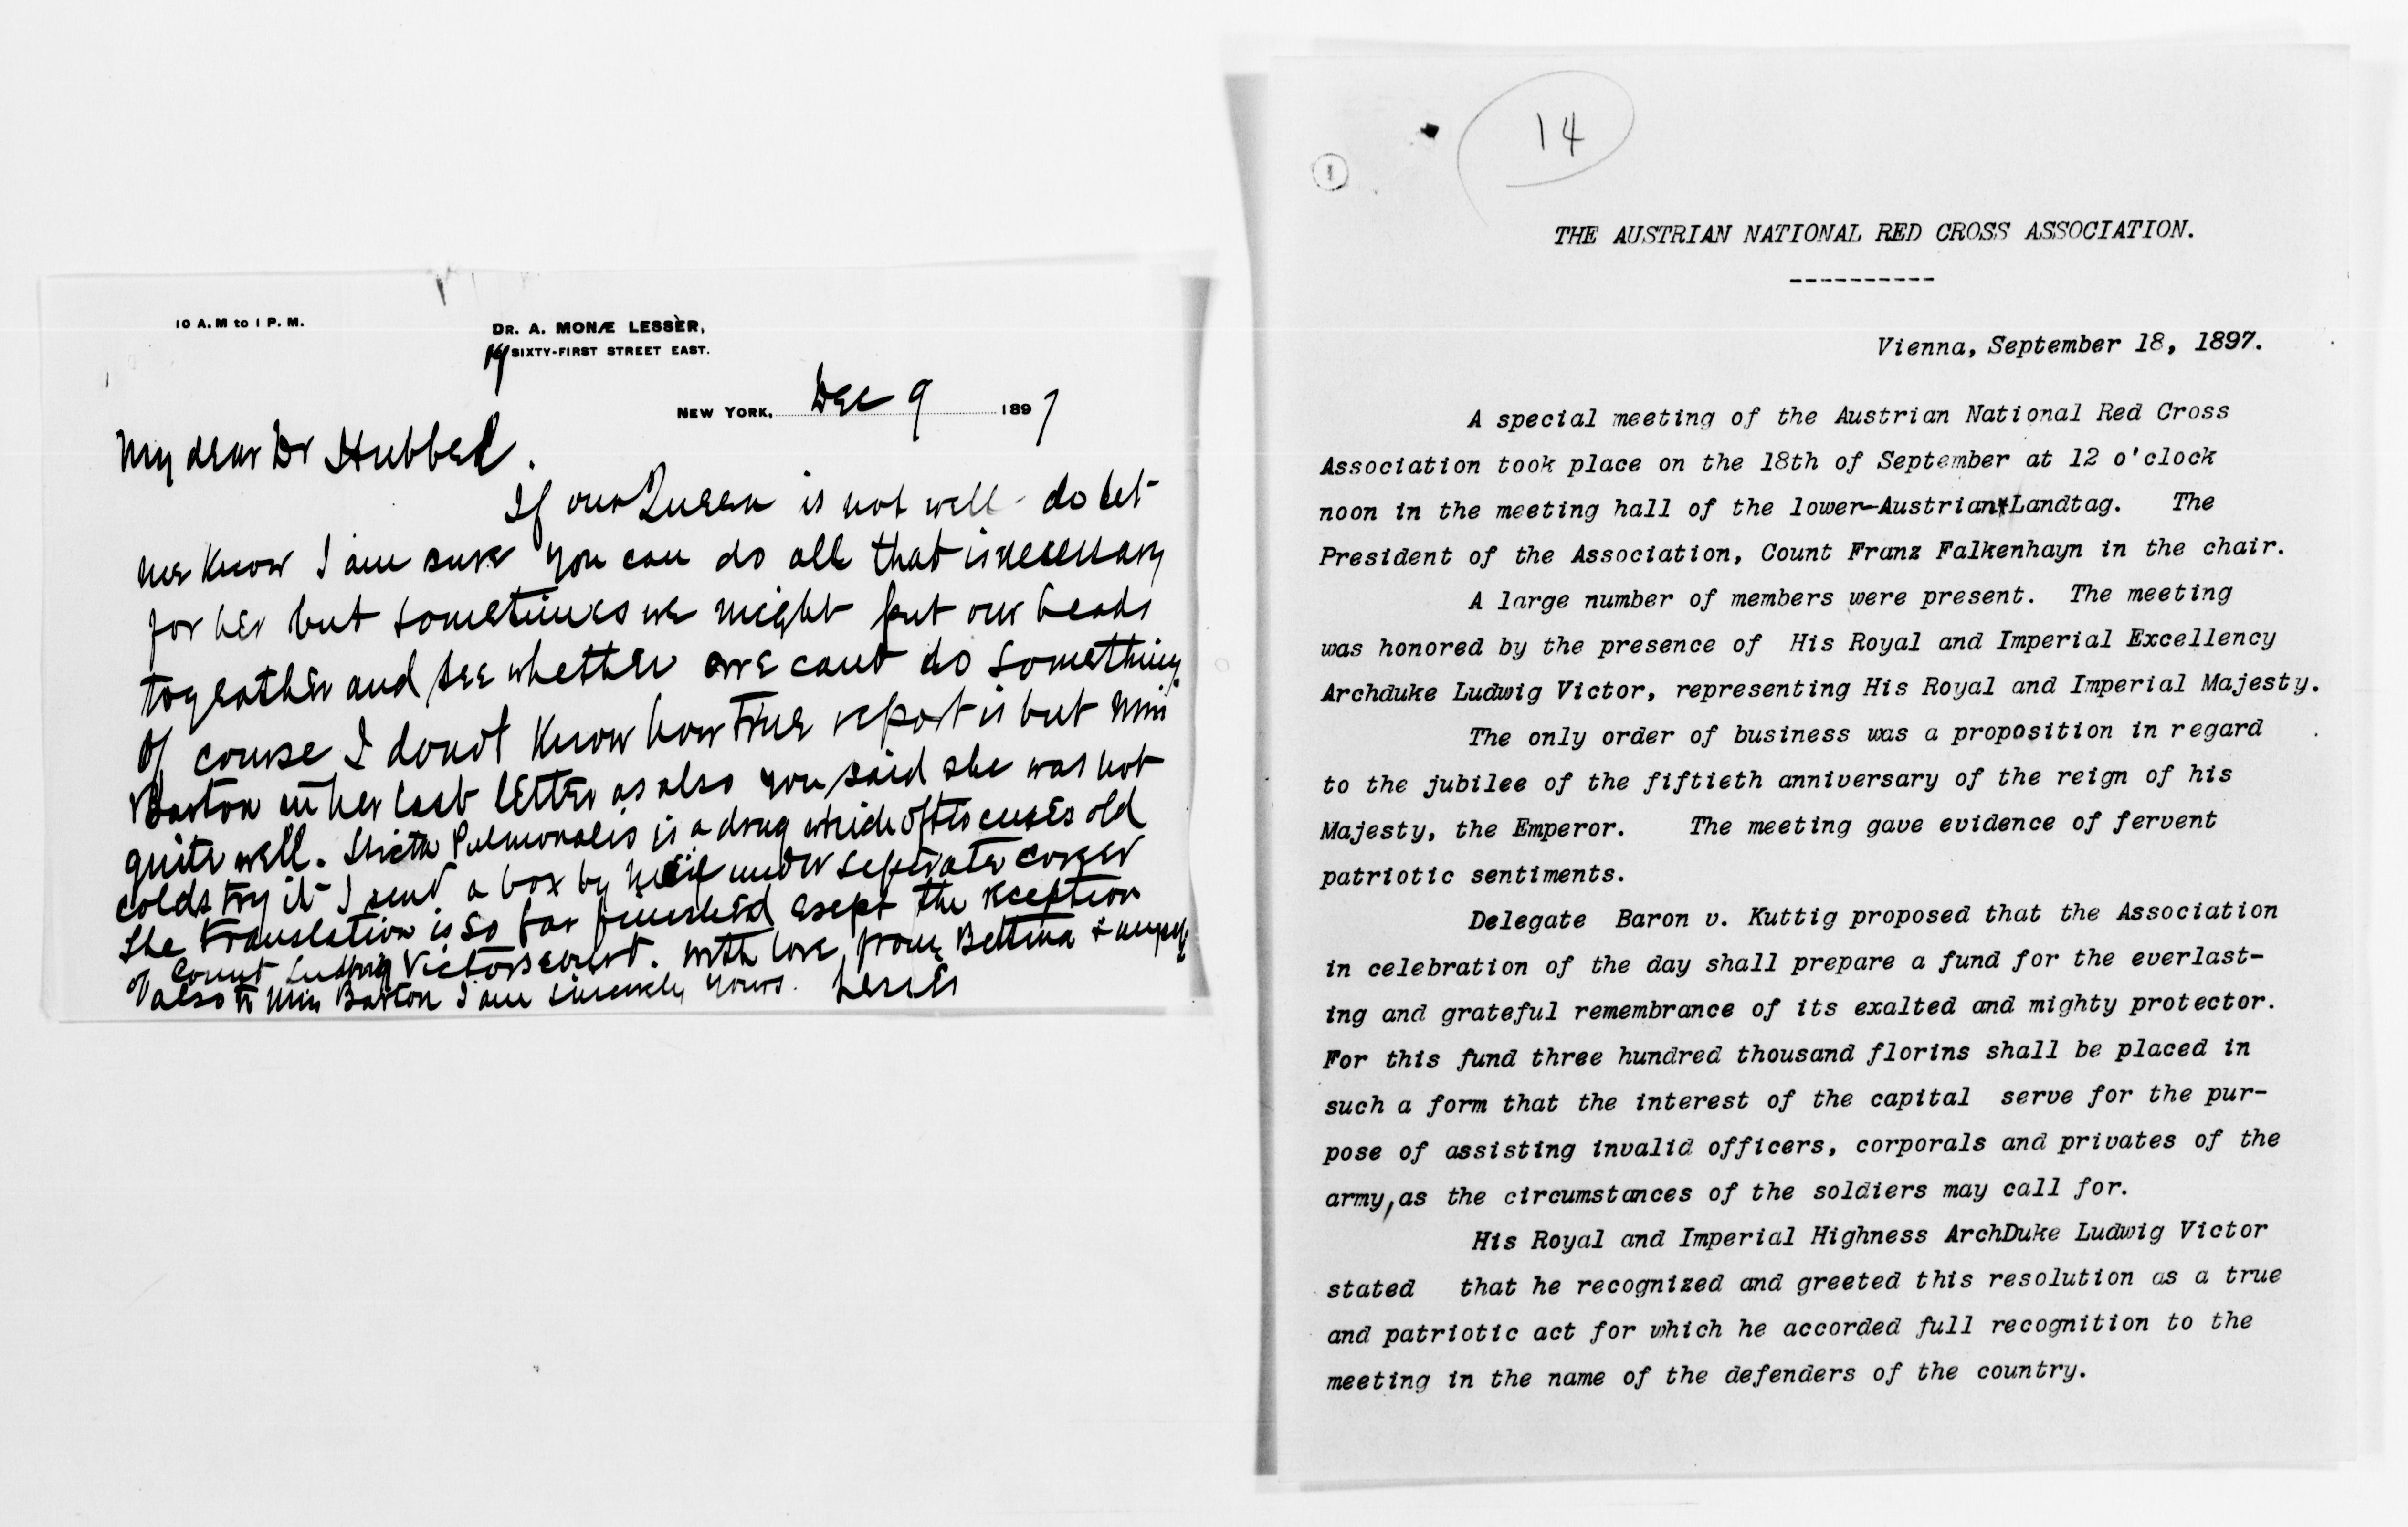 10 A. M to 1 P. M.
DR. A. MONÆ LESSER,
19 SIXTY-FIRST STREET EAST.
NEW YORK, Dec 9 1897
My dear Dr Hubbell.
If our Queen is not well - do let
me know I am sure you can do all that is necessary
for her but sometimes we might put our heads
togeather and see whether we cant do something.
Of course I donot know how true report is but Miss
Barton in her last letter as also you said she was not
quite well. Sticta Pulmonalis is a drug which oftes cures old
colds try it I send a box by mail under seperate cover
The translation is so far finished exept the reception
of Count Ludwig Victors court. With love from Bettina & myself
also to Miss Barton I am sincerely yours. Lesser
14
1
THE AUSTRIAN NATIONAL RED CROSS ASSOCIATION.
----------
Vienna, September 18, 1897.
A special meeting of the Austrian National Red Cross
Association took place on the 18th of September at 12 o'clock
noon in the meeting hall of the lower-Austrian Landtag. The
President of the Association, Count Franz Falkenhayn in the chair.
A large number of members were present. The meeting
was honored by the presence of His Royal and Imperial Excellency
Archduke Ludwig Victor, representing His Royal and Imperial Majesty.
The only order of business was a proposition in regard
to the jubilee of the fiftieth anniversary of the reign of his
Majesty, the Emperor. The meeting gave evidence of fervent
patriotic sentiments.
Delegate Baron v. Kuttig proposed that the Association
in celebration of the day shall prepare a fund for the everlast-
ing and grateful remembrance of its exalted and mighty protector.
For this fund three hundred thousand florins shall be placed in
such a form that the interest of the capital serve for the pur-
pose of assisting invalid officers, corporals and privates of the
army, as the circumstances of the soldiers may call for.
His Royal and Imperial Highness ArchDuke Ludwig Victor
stated that he recognized and greeted this resolution as a true
and patriotic act for which he accorded full recognition to the
meeting in the name of the defenders of the country.